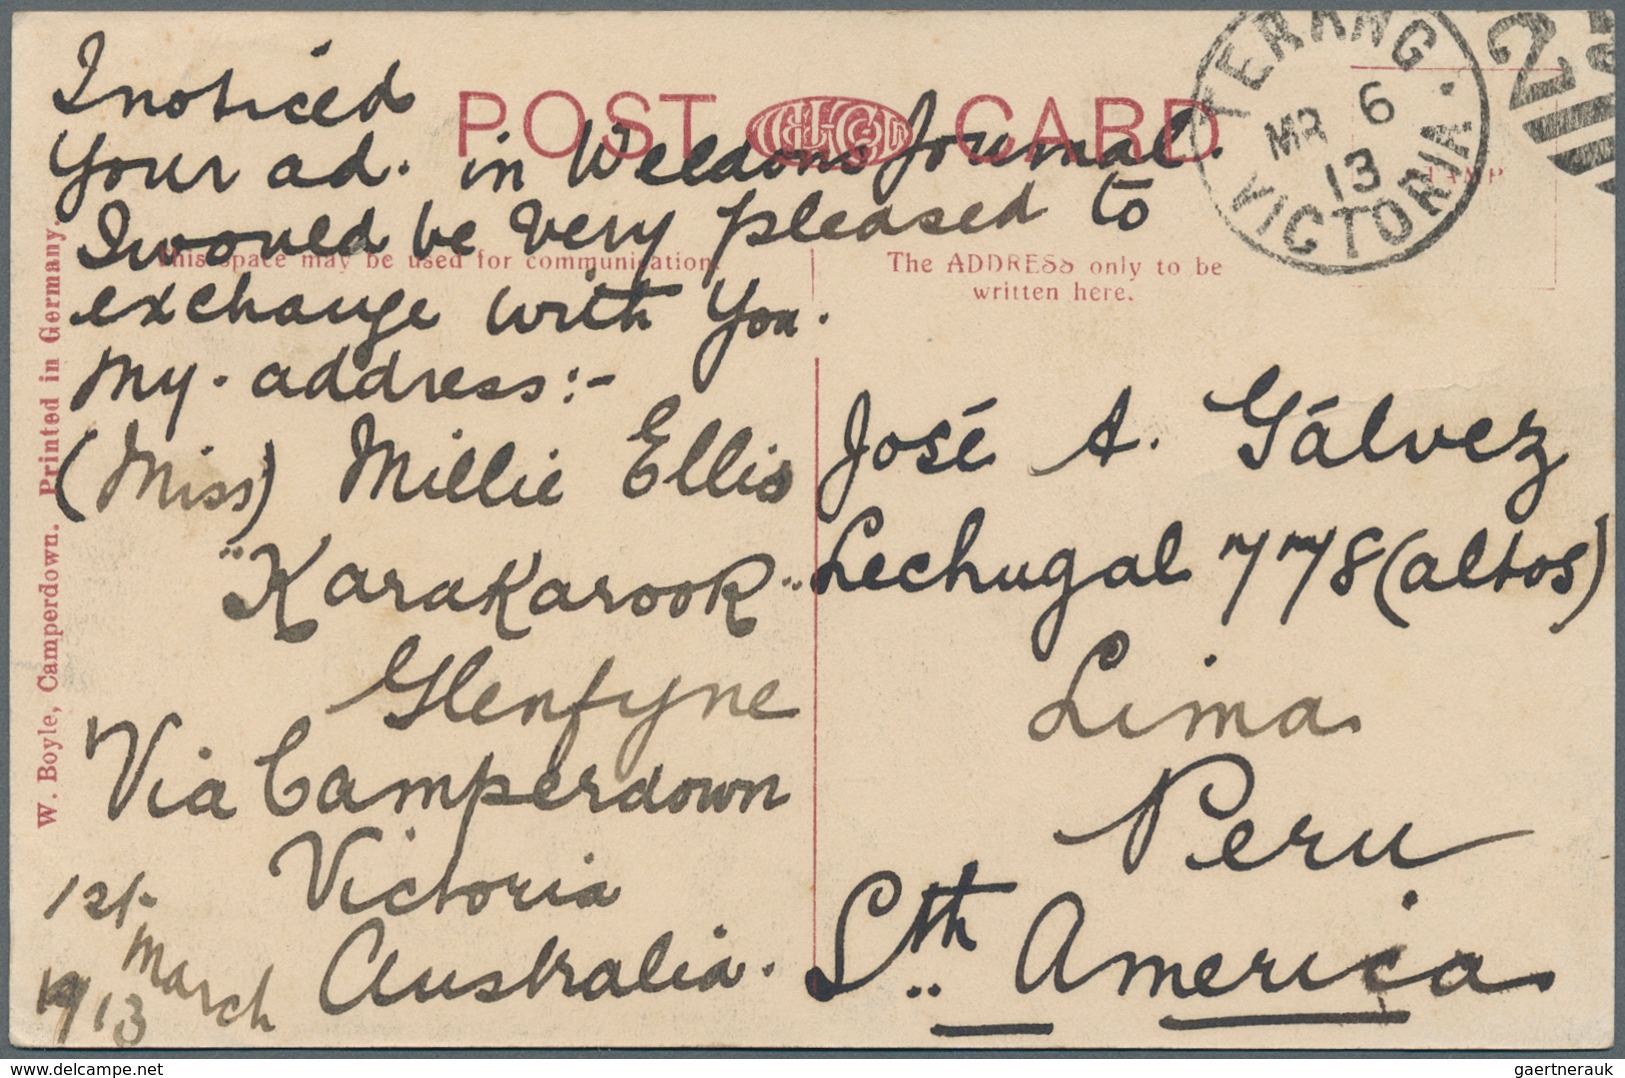 I noticed
Your ad. in Weldons Journal.
I would be very pleased to
exchange with you.
My. address:-
(Miss) Millie Ellis
"Karakarook"
Glenfyne
Via Camperdown
Victoria
Australia.
1st March
1913
POST CARD
This space may be used for communication.
The ADDRESS only to be
written here.
W. Boyle, Camperdown. Printed in Germany.
TERANG
MR 6
13
VICTORIA
STAMP
2
José A. Gálvez
Lechugal 778 (altos)
Lima
Peru
Sth America
delcampe.net
gaertnerauk